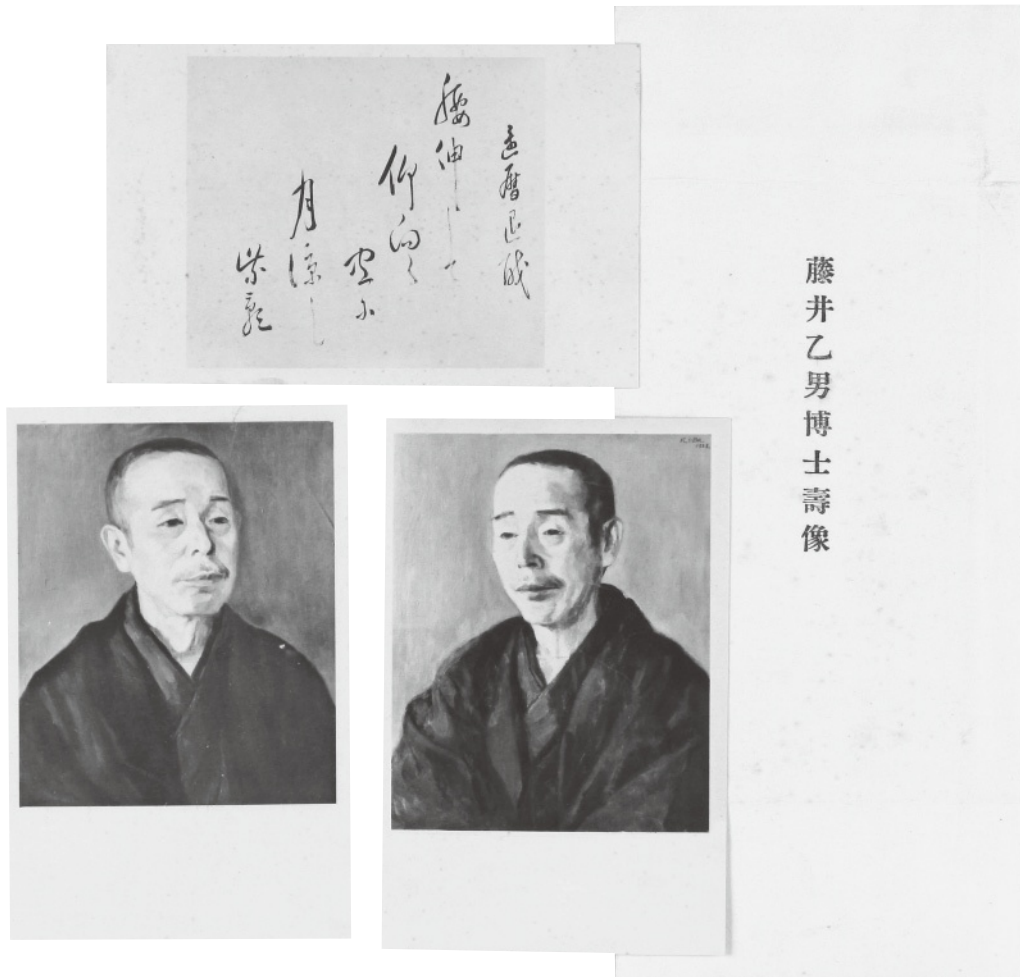 藤井乙男博士壽像
還暦退職
腰伸して
仰向く
空に
月涼し
紫影